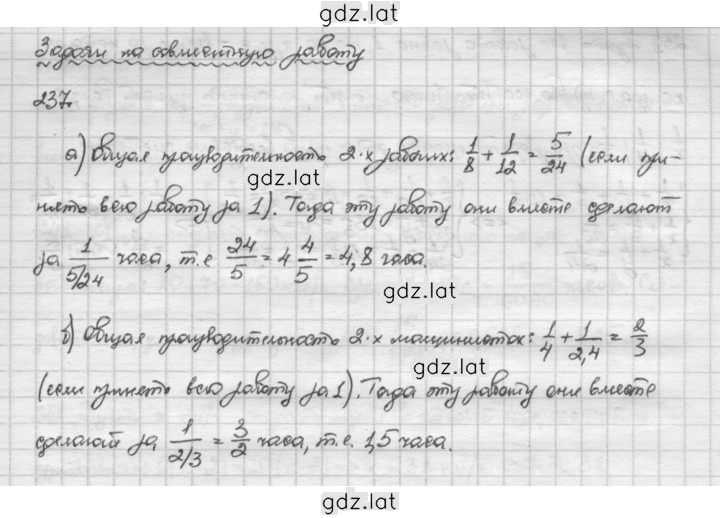 gdz.lat
Задачи на совместную работу
237.
а) Общая производительность 2-х рабочих: 1/8 + 1/12 = 5/24 (если при-
gdz.lat
нять всю работу за 1). Тогда эту работу они вместе сделают
за 1/5/24 часа, т.е 24/5 = 4 4/5 = 4,8 часа.
gdz.lat
б) Общая производительность 2-х машинисток: 1/4 + 1/2,4 = 2/3
gdz.lat
(если принять всю работу за 1). Тогда эту работу они вместе
сделают за 1/2/3 = 3/2 часа, т.е. 1,5 часа.
gdz.lat